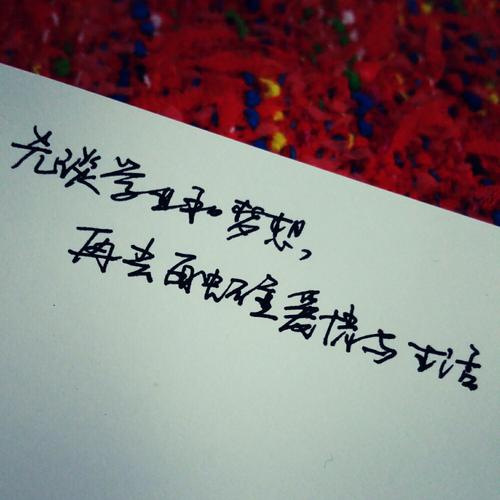 先谈学业和梦想，
再去触碰爱情与生活